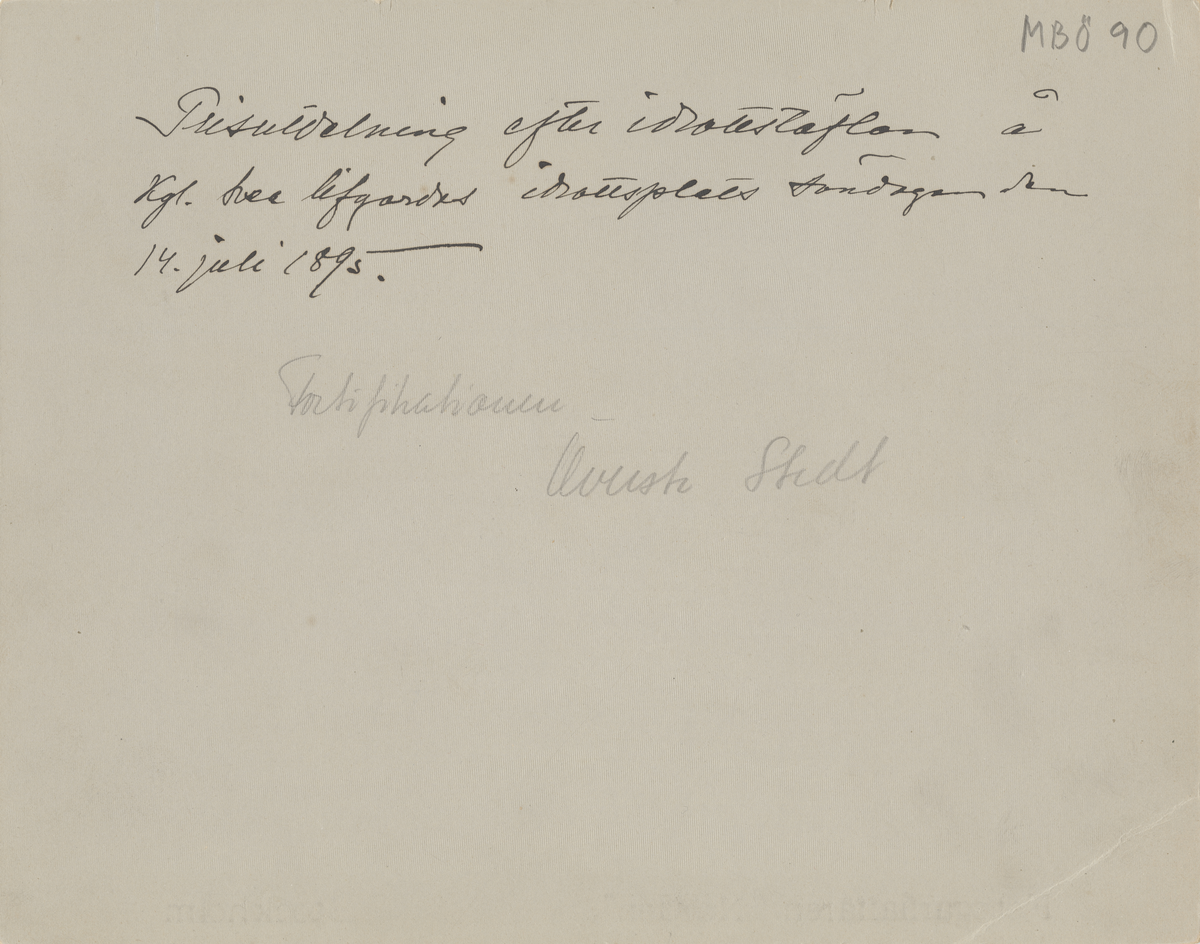 MBÖ 90
Prisutdelning efter idrottstäflan å
Kgl. Svea lifgardes idrottsplats söndagen den
14. juli 1895.
Fortifikationen
Överste Stedt